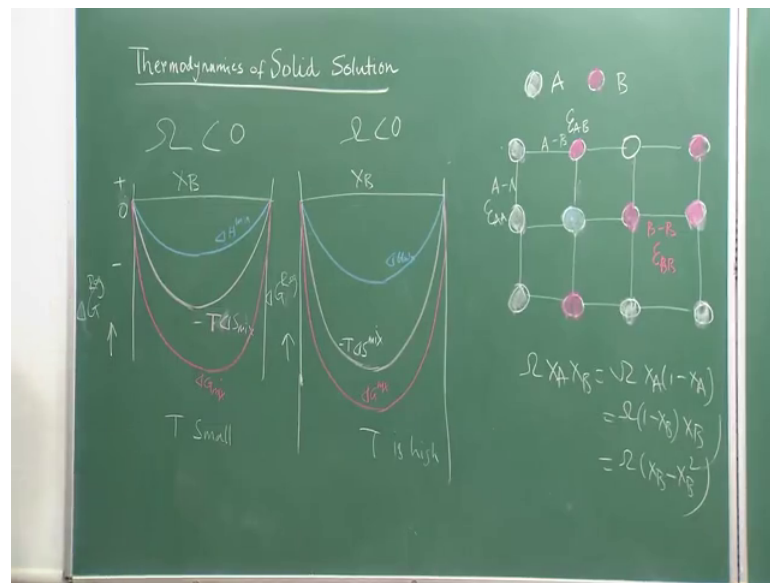 Thermodynamics of Solid Solution
Ω < 0
Ω < 0
XB
XB
+
0
-
ΔH mix
- TΔSmix
ΔGmix
ΔG Reg
T Small
ΔG Reg
-TΔS mix
ΔG mix
T is high
A
B
εAB
A-B
A-A
εAA
B-B
εBB
Ω XA XB = Ω XA(1-XA)
= Ω(1-XB) XB
= Ω(XB-XB²)